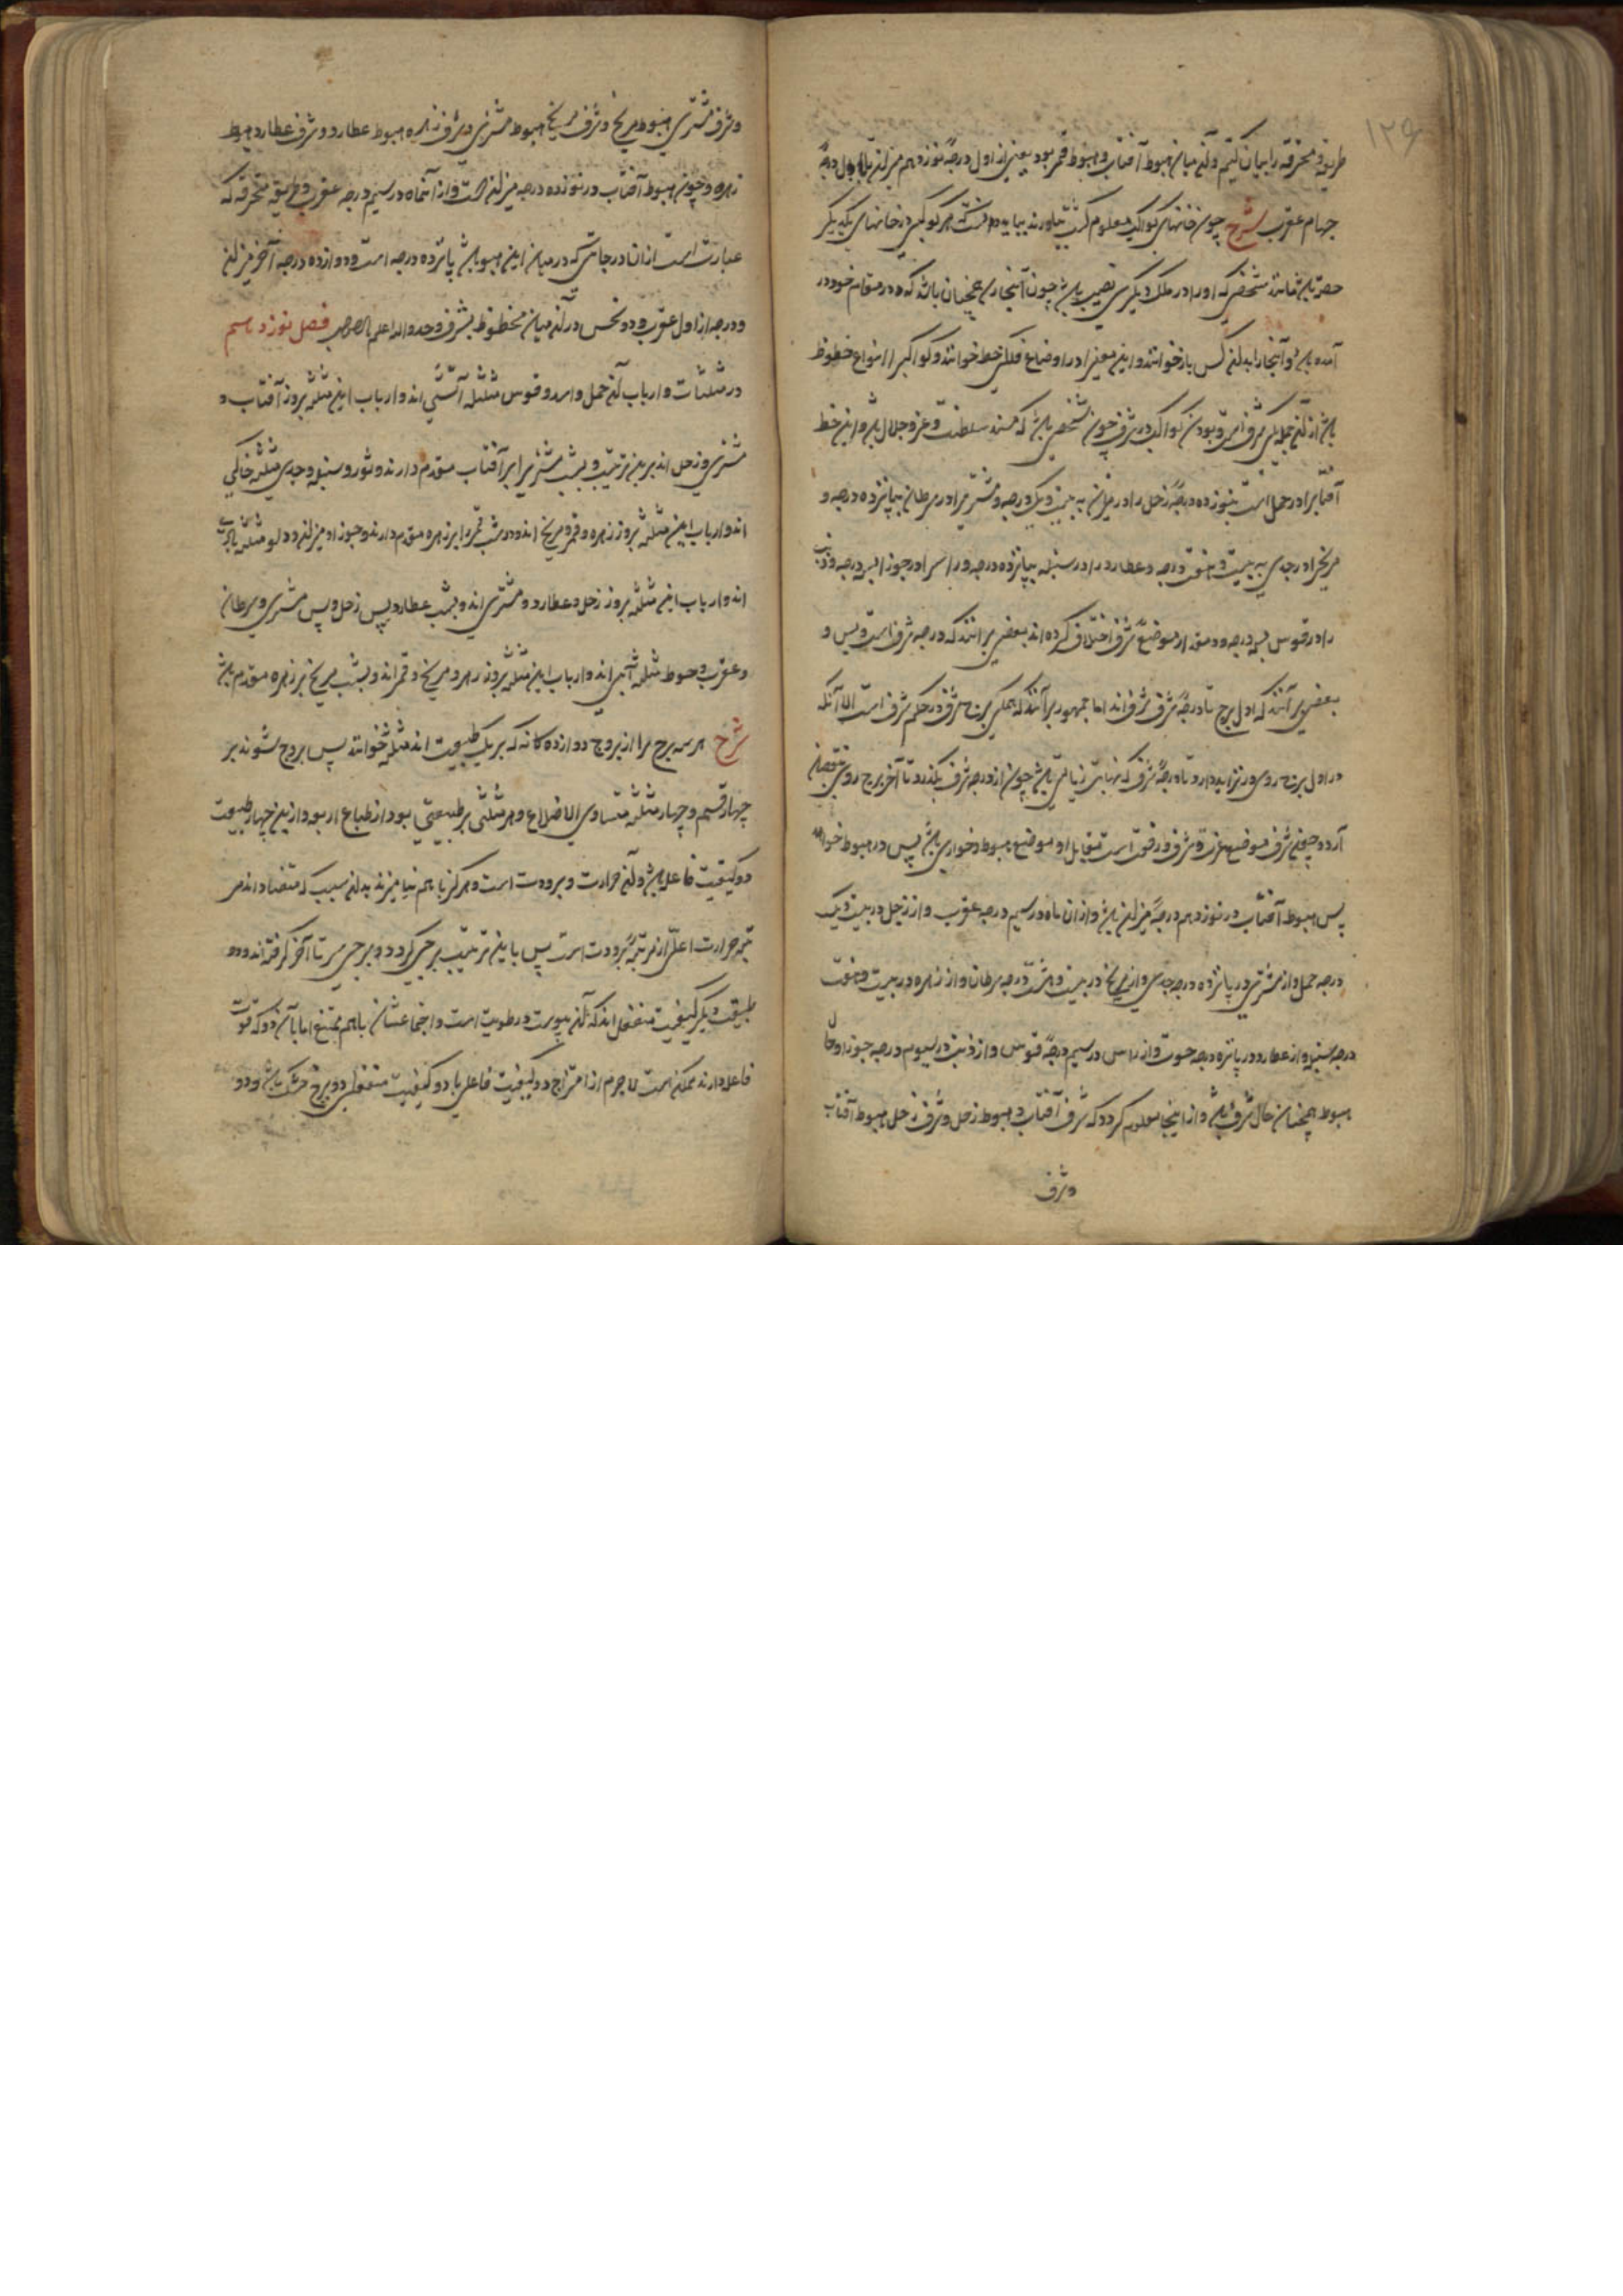 ۱۲۶
طریقه محترقه را بیان کنیم و آن میان هبوط آفتاب و هبوط قمر بود یعنی از اول درجهٔ نوزدهم میزان تا اول درجهٔ
چهارم عقرب شرح چون خانهای کواکب معلوم گشت بباید دانست که هر کوکبی در خانهای یکدیگر
حصه باشد مانند شخصی که او را در ملک دیگری نصیب باشد چون آنجا رسد همچنان باشد که در مقام خود در
آمده باشد و آنجا را بدان کس باز خوانند و این معنی را در اوضاع فلکی حظ خوانند و کواکب را انواع حظوظ
باشد از آن جمله یکی شرف است و بودن کواکب در شرف چون شخصی باشد که در مسند سلطنت و عز و جلال باشد و این حظ
آفتاب را در حمل است بنوزده درجه و زحل را در میزان به بیست و یک درجه و مشتری را در سرطان بپانزده درجه و
مریخ را در جدی به بیست و هشت درجه و عطارد را در سنبله بپانزده درجه و راس را در جوزا بسه درجه و ذنب
را در قوس بسه درجه و در مقدار موضع شرف اختلاف کرده اند بعضی بر آنند که درجه شرف است و بس و
بعضی بر آنند که اول برج تا درجهٔ شرف شرف اند اما جمهور بر آنند که جملگی برج شرف در حکم شرف است الا آنکه
در اول برج روی در تزاید دارد تا درجهٔ شرف که نهایت زیادتی باشد چون از درجه شرف بگذرد تا آخر برج روی بنقصان
آرد و چون شرف موضع عزت و شرف و رفعت است مقابل او موضع هبوط و خواری باشد پس در هبوط خوانند
پس هبوط آفتاب در نوزدهم درجهٔ میزان باشد و از ان ماه در سیم درجه عقرب و از زحل در بیست و یک
درجه حمل و از مشتری در پانزده درجه جدی و از مریخ در بیست و هشت درجه سرطان و از زهره در بیست و هفت
درجه سنبله و از عطارد در پانزده درجه حوت و از راس در سیم درجهٔ قوس و از ذنب در سیوم درجه جوزا و حال
هبوط همچنان حال شرف باشد و از اینجا معلوم گردد که شرف آفتاب و هبوط زحل و شرف زحل هبوط آفتاب
و شرف
و شرف مشتری هبوط مریخ و شرف مریخ هبوط مشتری و شرف زهره هبوط عطارد و شرف عطارد هبوط
زهره و چون هبوط آفتاب در نوزده درجه میزان است و از آن ماه در سیم درجه عقرب و طریقه محترقه که
عبارت است از ان درجاتی که در میان این هبوط باشد پانزده درجه است دوازده درجه آخر میزان
و درجه از اول عقرب و دو نحس در آن میان محظوظ بشرف و حد والله اعلم بالصواب فصل نوزدهم
در مثلثات و ارباب آن حمل و اسد و قوس مثلثه آتشی اند و ارباب این مثلثه بروز آفتاب و
مشتری و زحل اند برین ترتیب و بشب مشتری را بر آفتاب مقدم دارند و ثور و سنبله و جدی مثلثه خاکی
اند و ارباب این مثلثه بروز زهره و قمر و مریخ اند و در شب قمر را بر زهره مقدم دارند و جوزا و میزان و دلو مثلثه بادی
اند و ارباب این مثلثه بروز زحل و عطارد و مشتری اند و بشب عطارد پس زحل و پس مشتری و سرطان
و عقرب و حوت مثلثه آبی اند و ارباب این مثلثه بروز زهره و مریخ و قمر اند و بشب مریخ بر زهره مقدم باشد
شرح هر سه برج را از بروج دوازده گانه که بر یک طبیعت اند مثلثه خوانند پس بروج شوند بر
چهار قسم و چهار مثلثه متساوی الاضلاع و هر مثلثی بر طبیعتی بود از طباع اربعه و ازین چهار طبیعت
دو کیفیت فاعل باشد و آن حرارت و برودت است و هرگز با هم نیامیزند بدان سبب که متضاد اند مر
تبه حرارت اعلی از مرتبهٔ برودت است پس باین ترتیب برجی گرم و برجی سرد تا آخر گرفته اند و دو
طبیعت دیگر کیفیت منفعل اند که آن یبوست و رطوبت است و اجتماعشان با هم ممتنع اما با آن دو که قوت
فاعل دارند ممکن است لاجرم از امتزاج دو کیفیت فاعلی با دو کیفیت منفعلی دو برج خشک باشد و دو